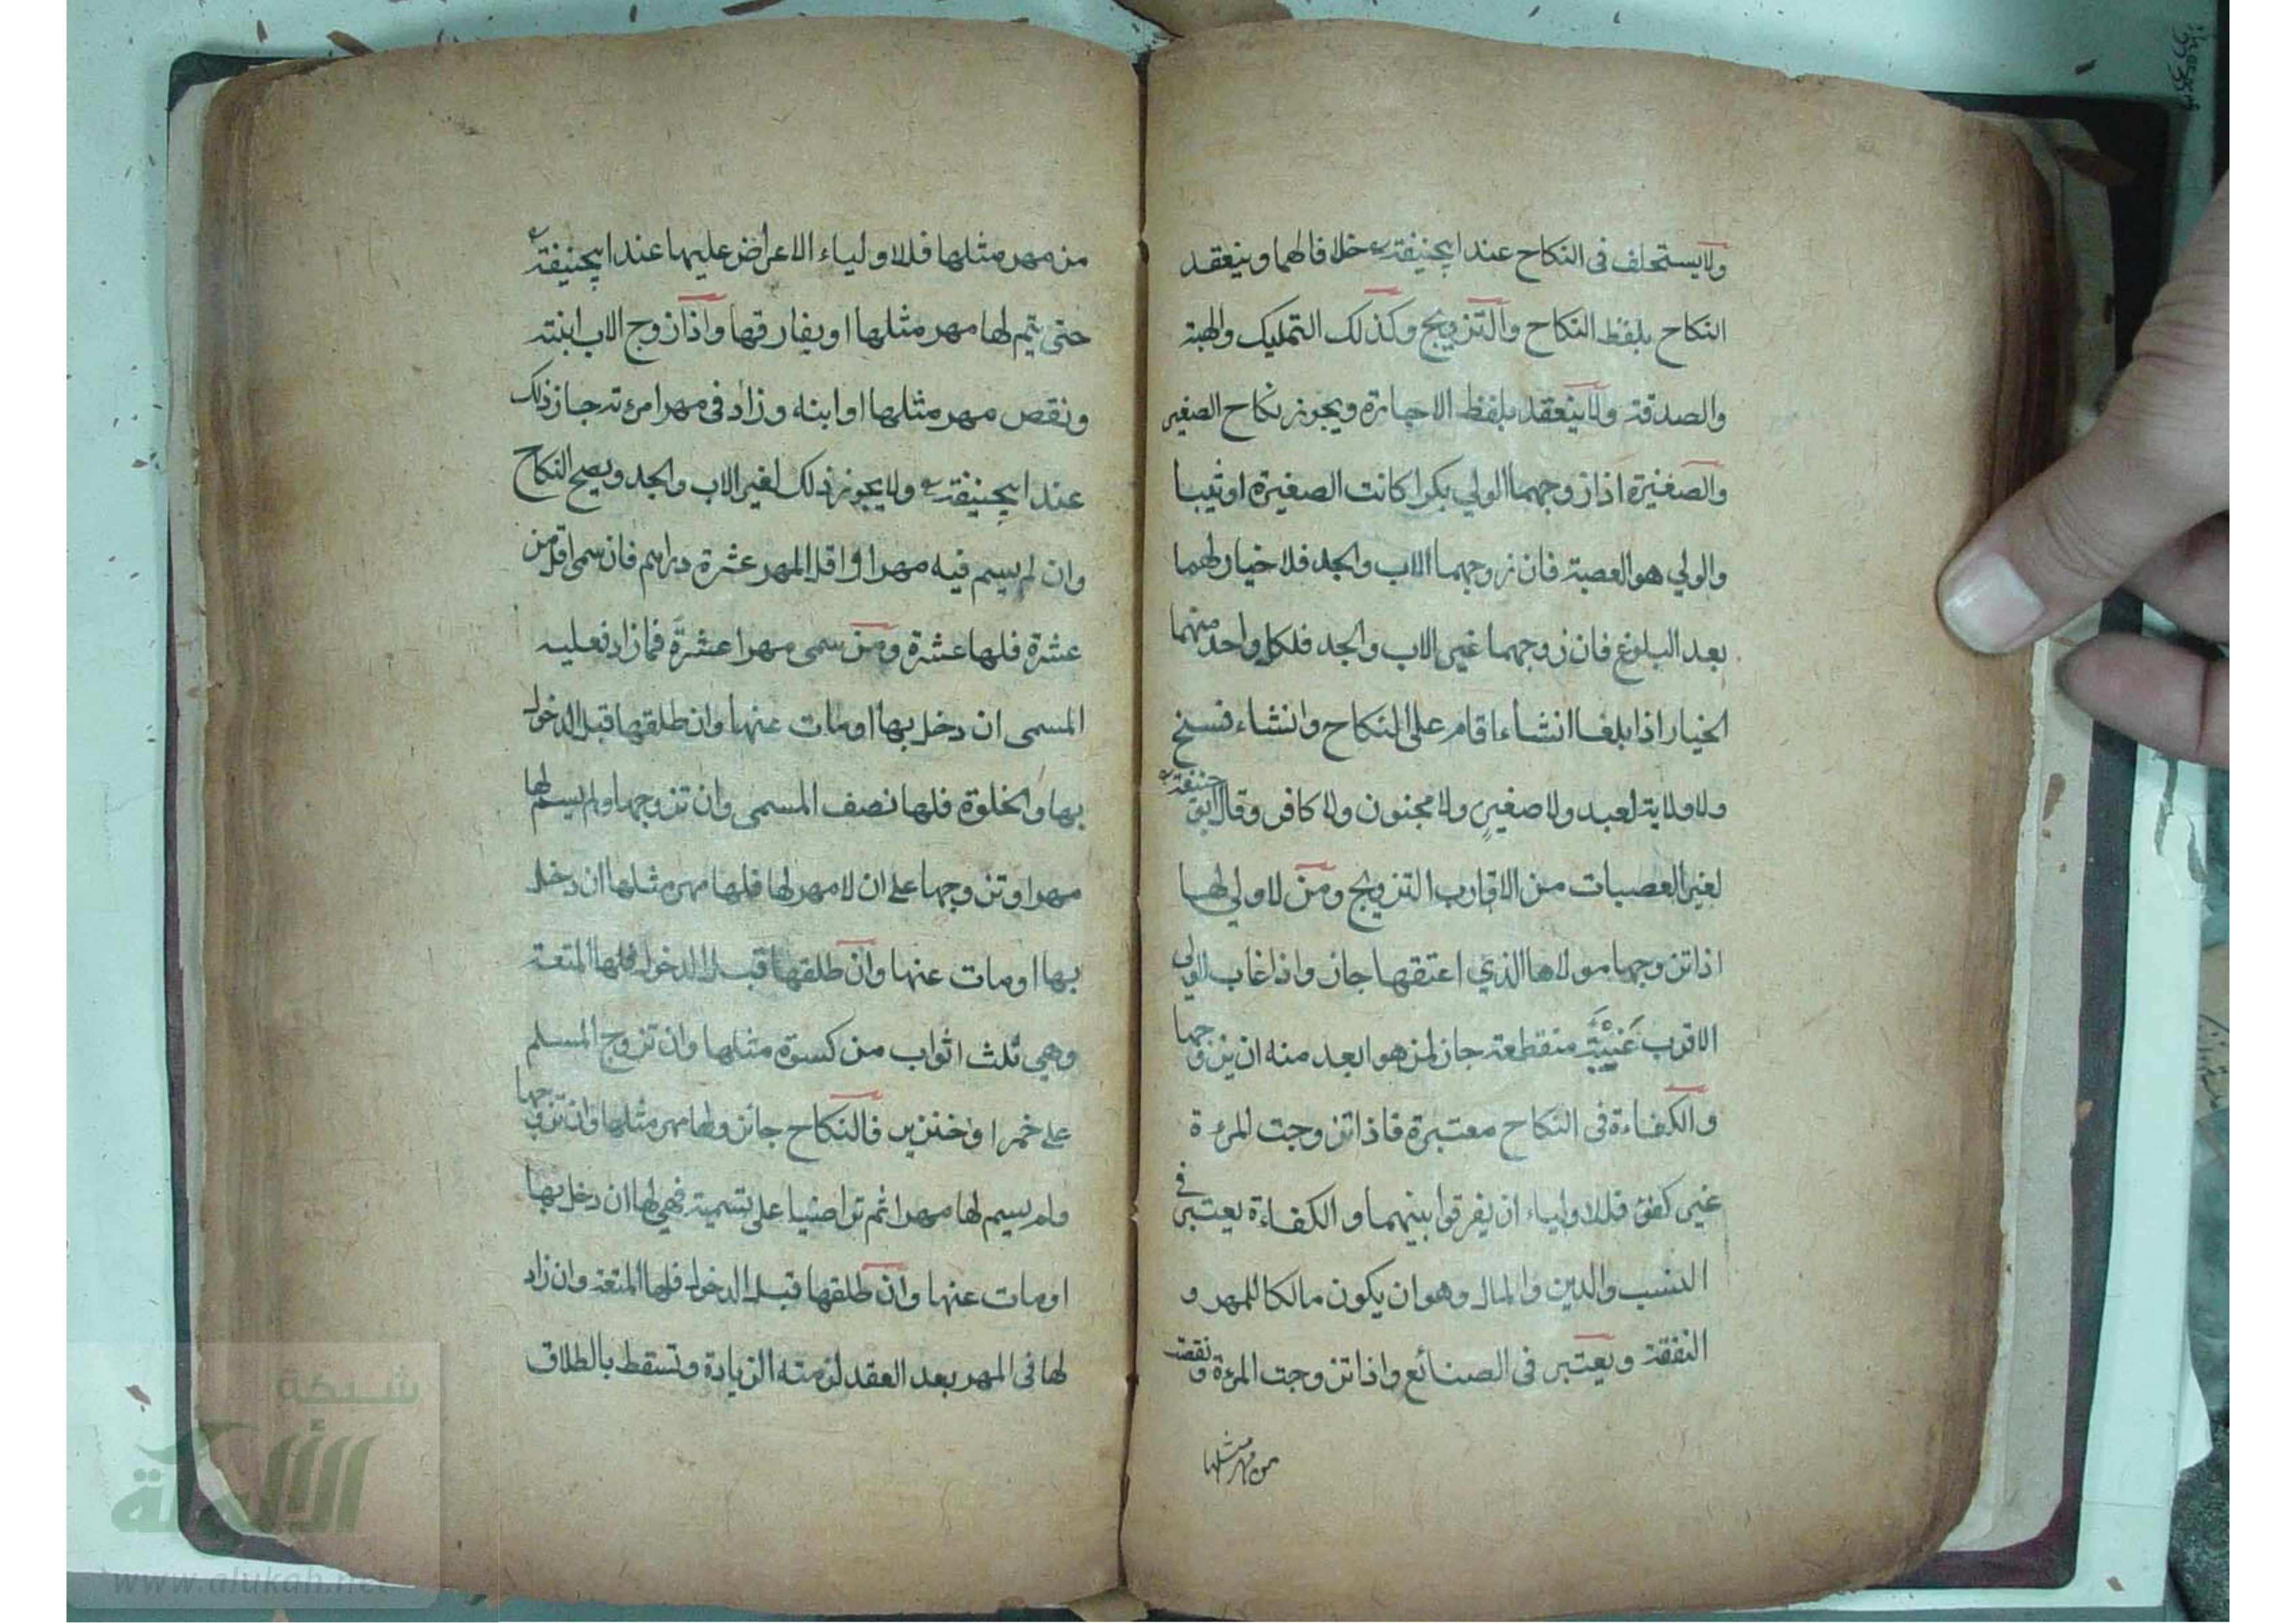 ولا يستحلف فى النكاح عند ابيحنيفة خلافا لهما وينعقد
النكاح بلفظ النكاح والتزويج وكذلك التمليك والهبة
والصدقة ولا ينعقد بلفظ الاجارة ويجوز نكاح الصغير
والصغيرة اذا زوجهما الولي بكرا كانت الصغيرة او ثيبا
والولي هو العصبة فان زوجهما الاب والجد فلا خيار لهما
بعد البلوغ فان زوجهما غير الاب والجد فلكل واحد منهما
الخيار اذا بلغا انشاء اقام على النكاح وانشاء فسخ
ولا ولاية لعبد ولا صغير ولا مجنون ولا كافر وقال ابو حنيفة
لغير العصبات من الاقارب التزويج ومن لا ولي لها
اذا تزوجها مولاها الذي اعتقها جاز واذا غاب الولي
الاقرب غَيْبَةً منقطعة جاز لمن هو ابعد منه ان يزوجها
والكفاءة فى النكاح معتبرة فاذا تزوجت المرءة
غير كفؤ فللاولياء ان يفرقوا بينهما والكفاءة يعتبر فى
النسب والدين والمال وهو ان يكون مالكا للمهر و
النفقة ويعتبر فى الصنائع واذا تزوجت المرءة ونقصت
من مهر مثلها
من مهر مثلها فللاولياء الاعراض عليها عند ابيحنيفة
حتى يتم لها مهر مثلها او يفارقها واذا زوج الاب ابنته
ونقص مهر مثلها او ابنه وزاد فى مهر امرءته جاز ذلك
عند ابيحنيفة ولا يجوز ذلك لغير الاب والجد ويصح النكاح
وان لم يسم فيه مهرا واقل المهر عشرة دراهم فان سمى اقل من
عشرة فلها عشرة ومن سمى مهرا عشرة فما زاد فعليه
المسمى ان دخل بها او مات عنها وان طلقها قبل الدخول
بها والخلوة فلها نصف المسمى وان تزوجها ولم يسم لها
مهرا وتزوجها على ان لا مهر لها فلها مهر مثلها ان دخل
بها او مات عنها وان طلقها قبل الدخول فلها المتعة
وهي ثلث اثواب من كسوة مثلها وان تزوج المسلم
على خمر او خنزير فالنكاح جائز ولها مهر مثلها وان تزوجها
ولم يسم لها مهرا ثم تراضيا على تسمية فهي لها ان دخل بها
او مات عنها وان طلقها قبل الدخول فلها المتعة وان زاد
لها فى المهر بعد العقد لزمته الزيادة وتسقط بالطلاق
شبكة
الألوكة
www.alukah.net